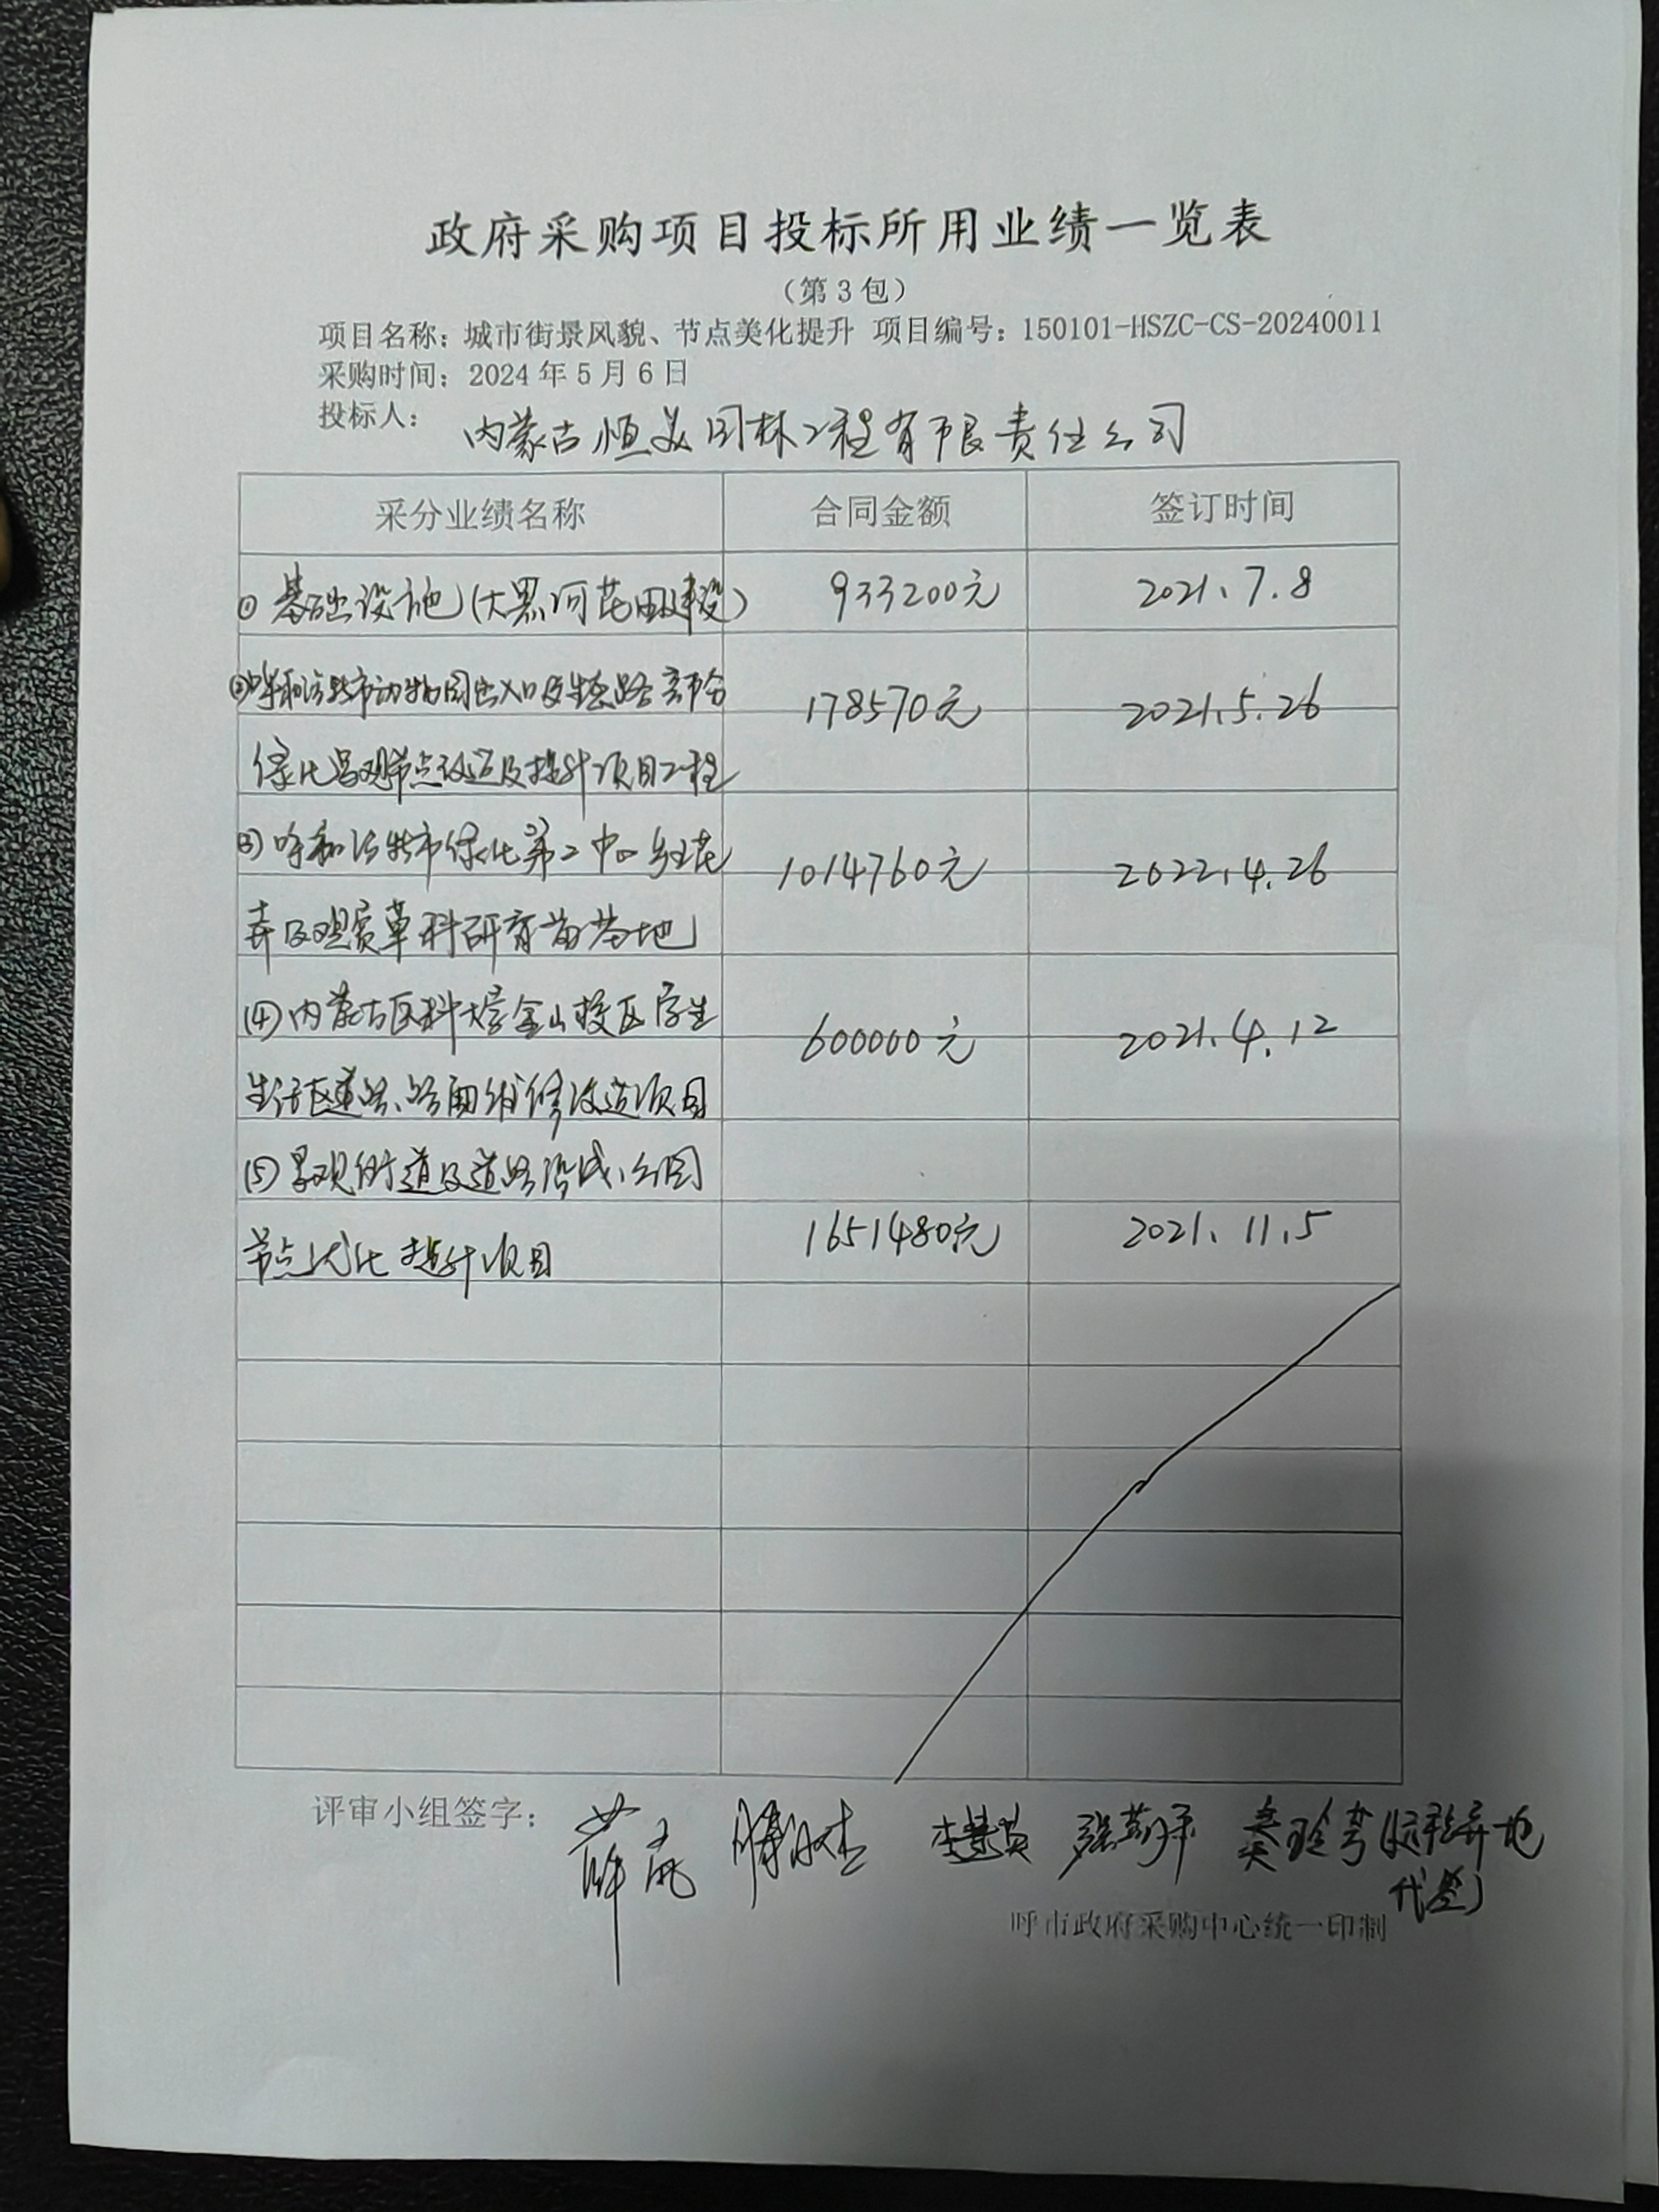 政府采购项目投标所用业绩一览表
（第3包）
项目名称：城市街景风貌、节点美化提升 项目编号：150101-HSZC-CS-20240011
采购时间：2024年5月6日
投标人： 内蒙古恒美园林工程有限责任公司
采分业绩名称 合同金额 签订时间
① 基础设施(大黑河花田建设) 933200元 2021.7.8
②呼和浩特市动物园出入口及生态路部分
178570元 2021.5.26
绿化景观节点改造及提升项目工程
③ 呼和浩特市绿化第二中心乡土花
1014760元 2022.4.26
卉及观赏草科研育苗基地
(4) 内蒙古医科大学金山校区学生
600000元 2021.4.12
生活区道路、路面维修改造项目
(5) 景观街道及道路沿线、公园
节点优化提升项目 1651480元 2021.11.5
评审小组签字： 薛 张 (远程异地
代签)
呼市政府采购中心统一印制